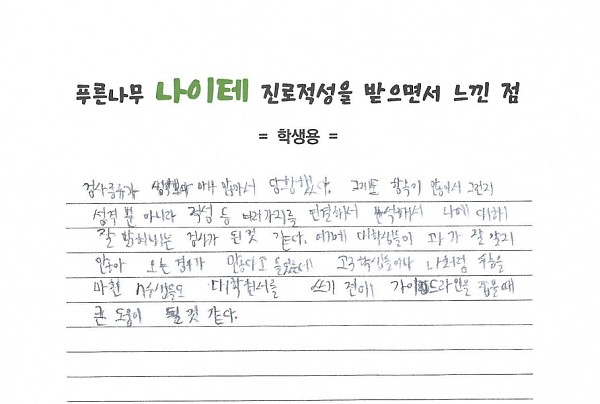 푸른나무 나이테 진로적성을 받으면서 느낀 점
= 학생용 =
검사종류가 많아서 당황했다. 그래도 항목이 많아서 그런지
성격 뿐 아니라 적성 등 여러가지를 연결해서 분석해서 나에 대해
잘 밝혀내는 검사가 된 것 같다. 대학생들이 과가 잘 맞지
않아 오는 경우가 많다고 들었는데 고3 학생들이나 나처럼 수능을
마친 N수생들도 대학원서를 쓰기 전에 가이드라인을 잡을때
큰 도움이 될 것 같다.